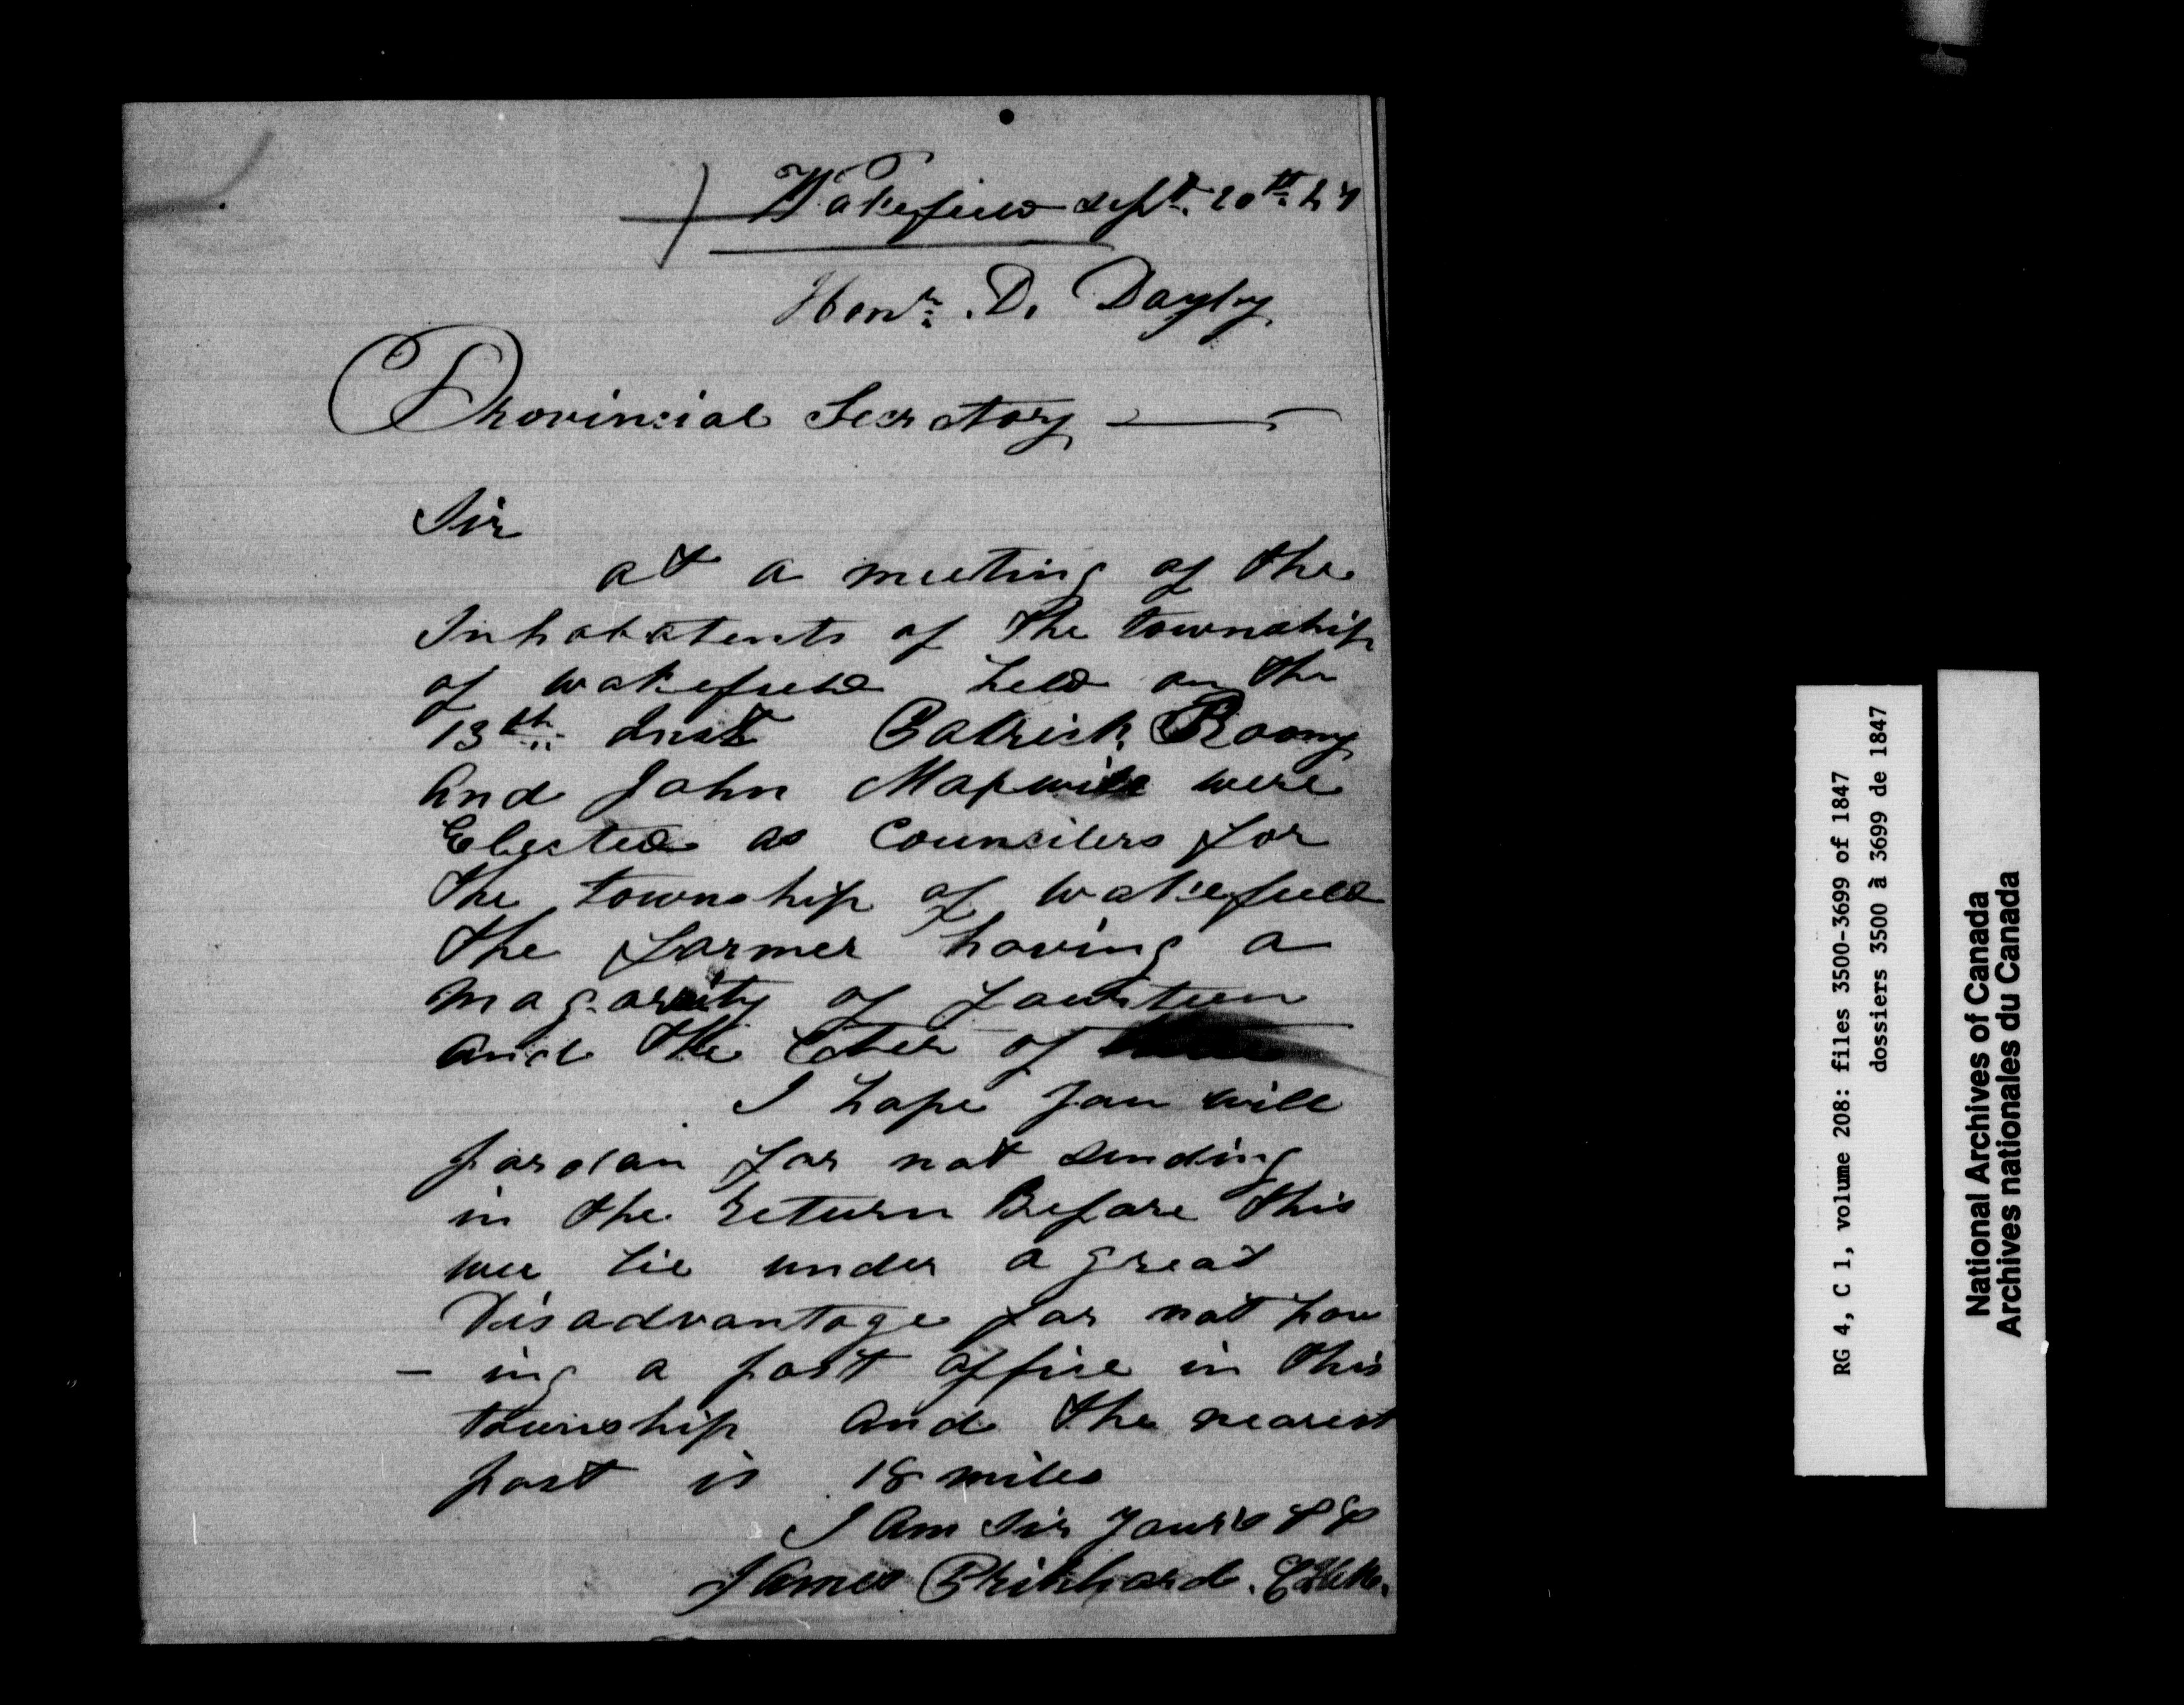 Wakefield Sept. 20th 47
Honr. D. Dayly
Provincial Secratory
Sir
at a meeting of the
Inhabatents of the township
of wakefield held on the
13th Inst Patrick Roony
and John Maxwill were
Elected as Councilers for
the township of wakefield
the former having a
magority of fourteen
and the other of
I hope you will
pardon for not sending
in the return Before this
wee lie under a great
Disadvantage for not hav
- ing a post office in this
township and the nearest
post is 18 miles
I am Sir yours &&
James Prichard.
RG 4, C 1, volume 208: files 3500-3699 of 1847
dossiers 3500 à 3699 de 1847
National Archives of Canada
Archives nationales du Canada